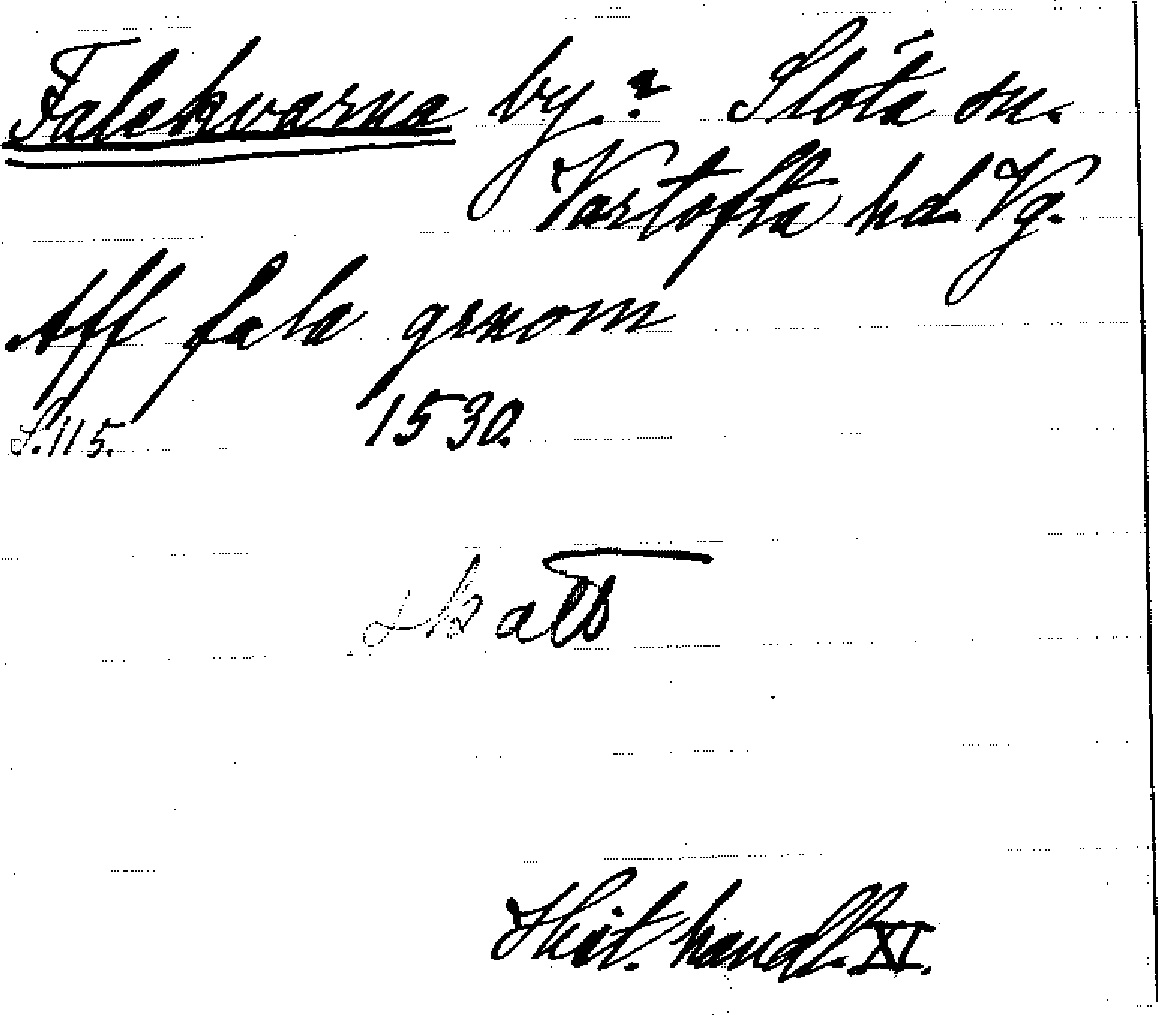 Falekvarna by.? Slöta sn.
Vartofta hd. Vg.
Aff fala genom
S. 115. 1530.
skatt
Hist. handl. XI.